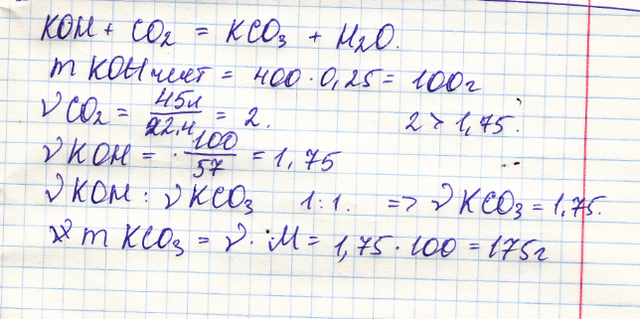 KOH + CO₂ = KCO₃ + H₂O.
m KOH чист = 400 · 0,25 = 100г
ν CO₂ = 45л / 22.4 = 2. 2 > 1,75.
ν KOH = 100 / 57 = 1,75
ν KOH : ν KCO₃ 1:1. => ν KCO₃ = 1,75.
m KCO₃ = ν · M = 1,75 · 100 = 175г